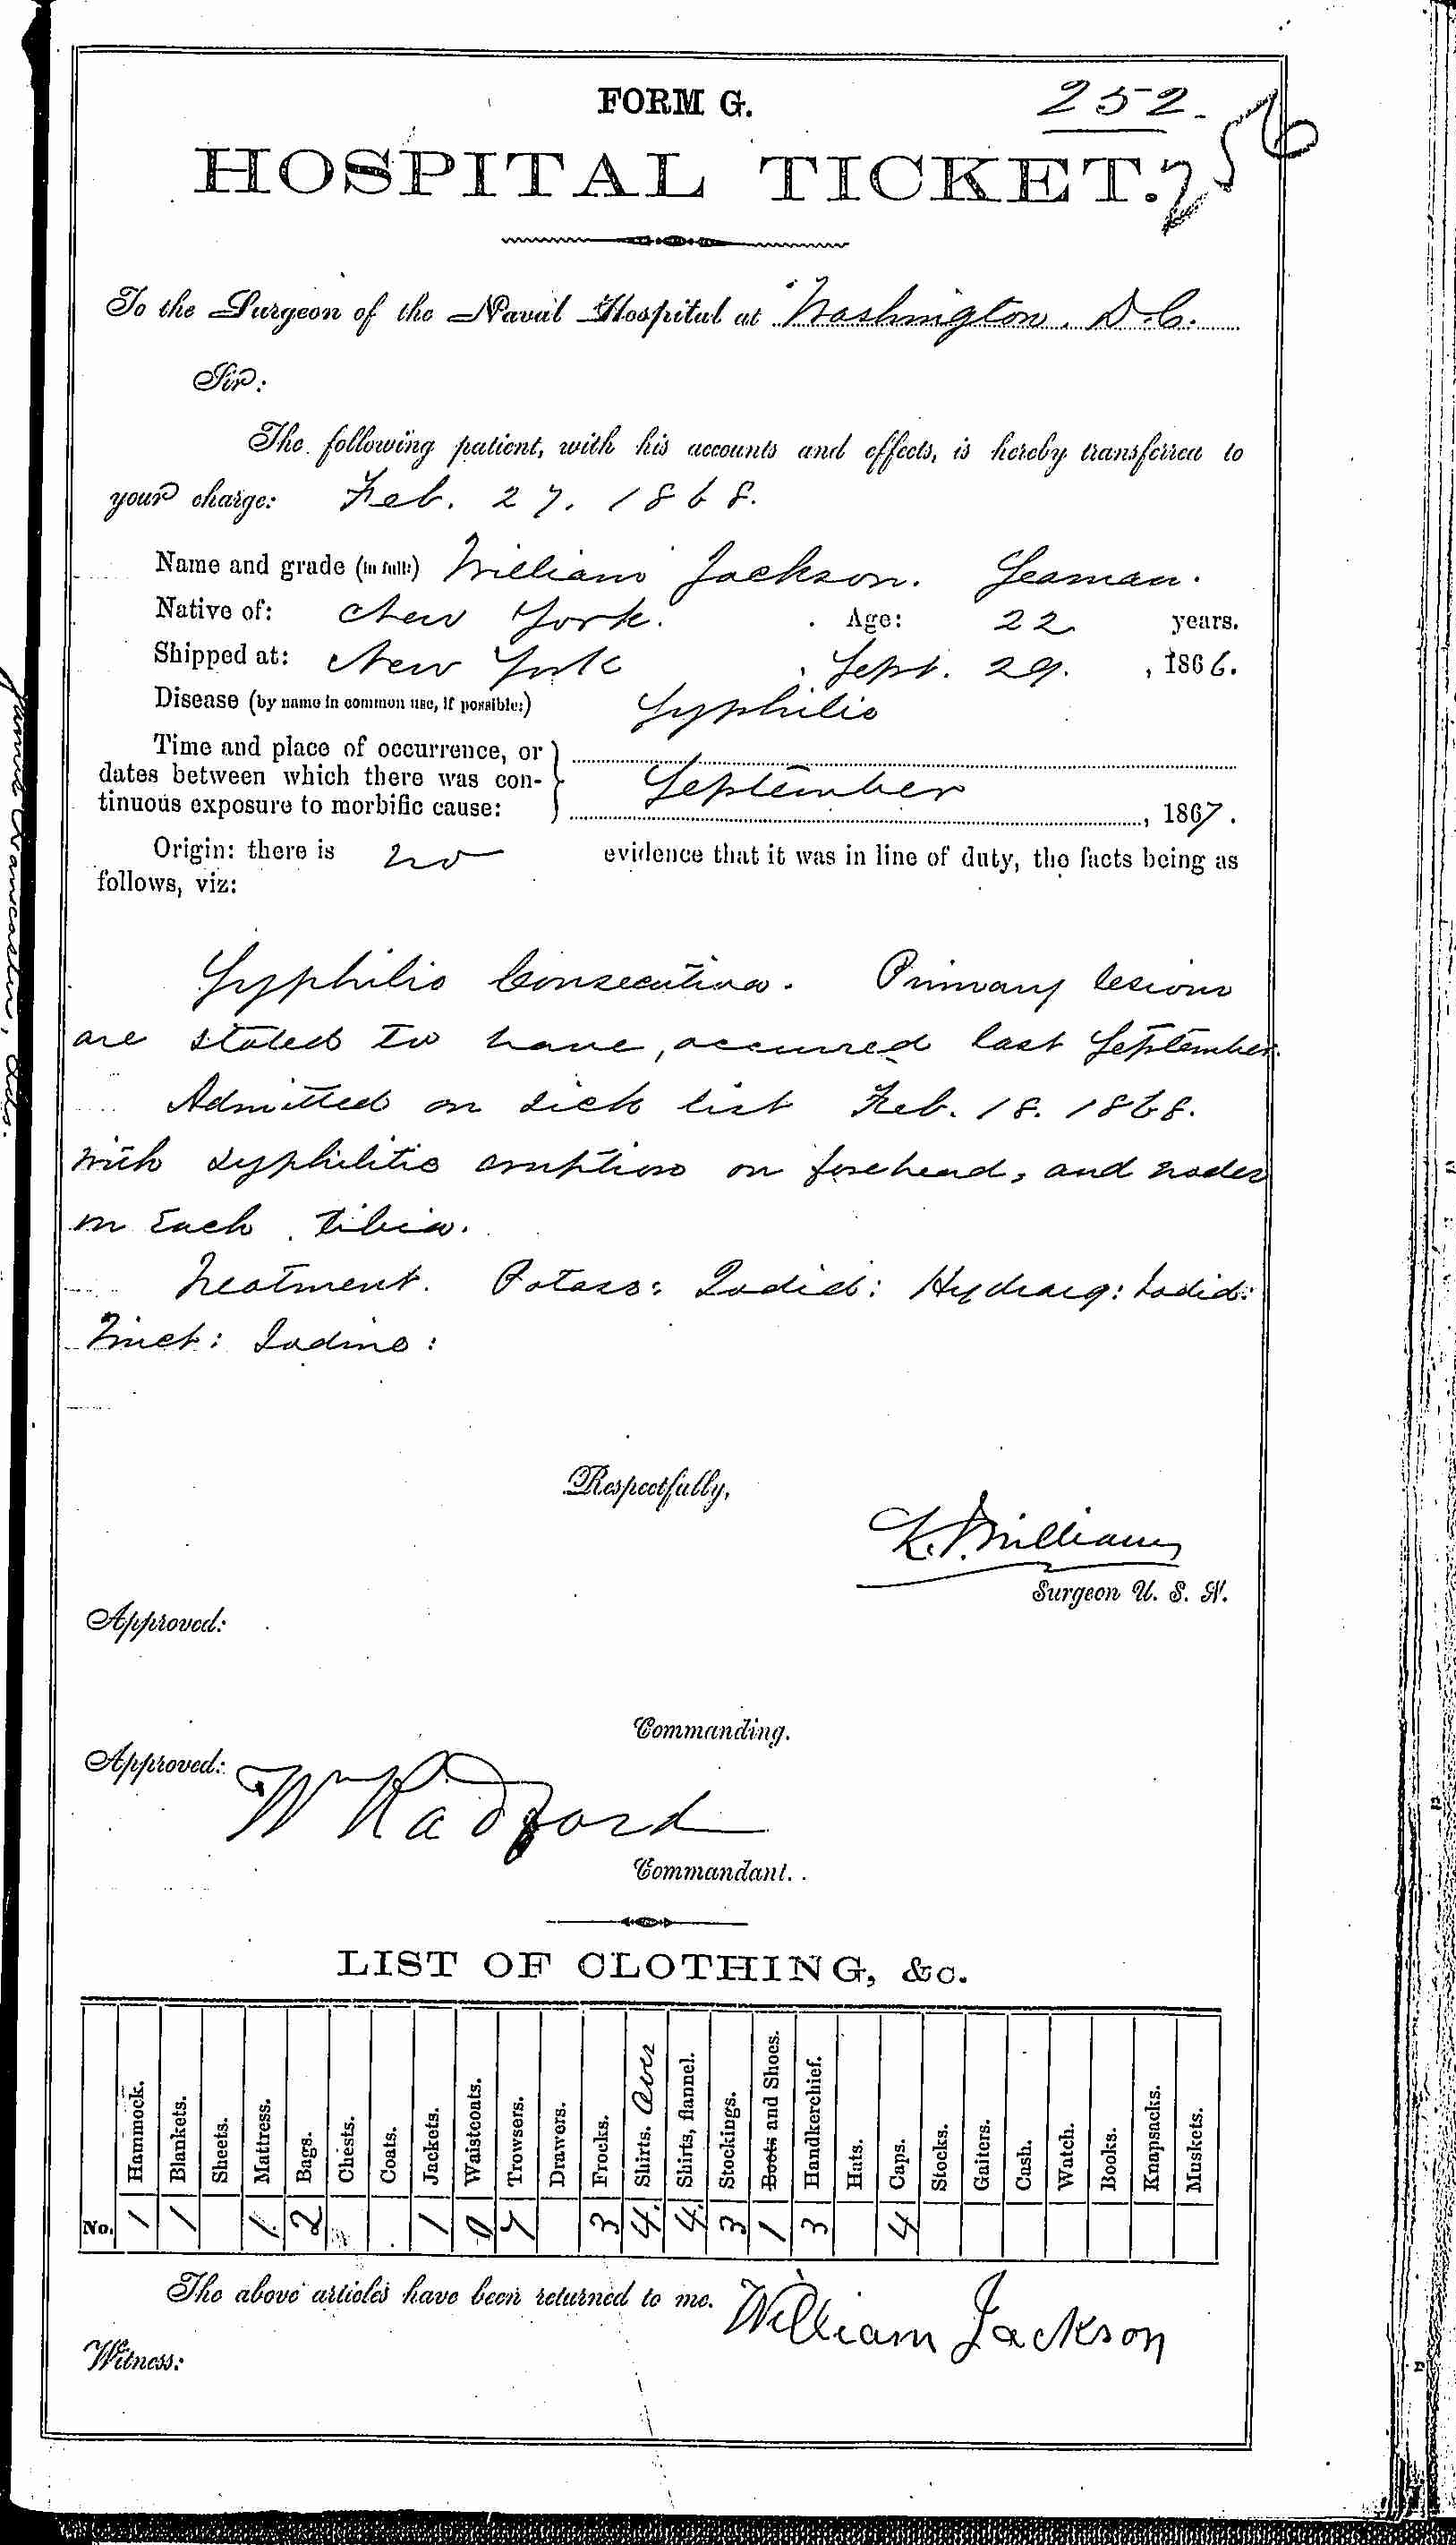 FORM G.
252.
256
HOSPITAL TICKET.
To the Surgeon of the Naval Hospital at Washington. D.C.
Sir:
The following patient, with his accounts and effects, is hereby transferred to
your charge: Feb. 27. 1868.
Name and grade (in full:) William Jackson. Seaman.
Native of: New York. Age: 22 years.
Shipped at: New York, Sept. 29. , 1866.
Disease (by name in common use, if possible:) Syphilis
Time and place of occurrence, or
dates between which there was con-
tinuous exposure to morbific cause: September , 1867.
Origin: there is no evidence that it was in line of duty, the facts being as
follows, viz:
Syphilis Consecutiva. Primary lesions
are stated to have, occurred last September.
Admitted on sick list Feb. 18. 1868.
with syphilitic eruption on forehead, and nodes
on Each tibia.
Treatment. Potass: Iodid: Hydrarg: Iodid:
Tinct: Iodine:
Respectfully,
Williams
Surgeon U. S. N.
Approved:
Commanding.
Approved:
Wm Radford
Commandant.
LIST OF CLOTHING, &c.
Hammock. Blankets. Sheets. Mattress. Bags. Chests. Coats. Jackets. Waistcoats. Trowsers. Drawers. Frocks. Shirts. Shirts, flannel. Stockings. Boots and Shoes. Handkerchief. Hats. Caps. Stocks. Gaiters. Cash. Watch. Books. Knapsacks. Muskets.
No. 1 1 1 2 1 0 7 3 4 4 3 1 3 4
The above articles have been returned to me. William Jackson
Witness: